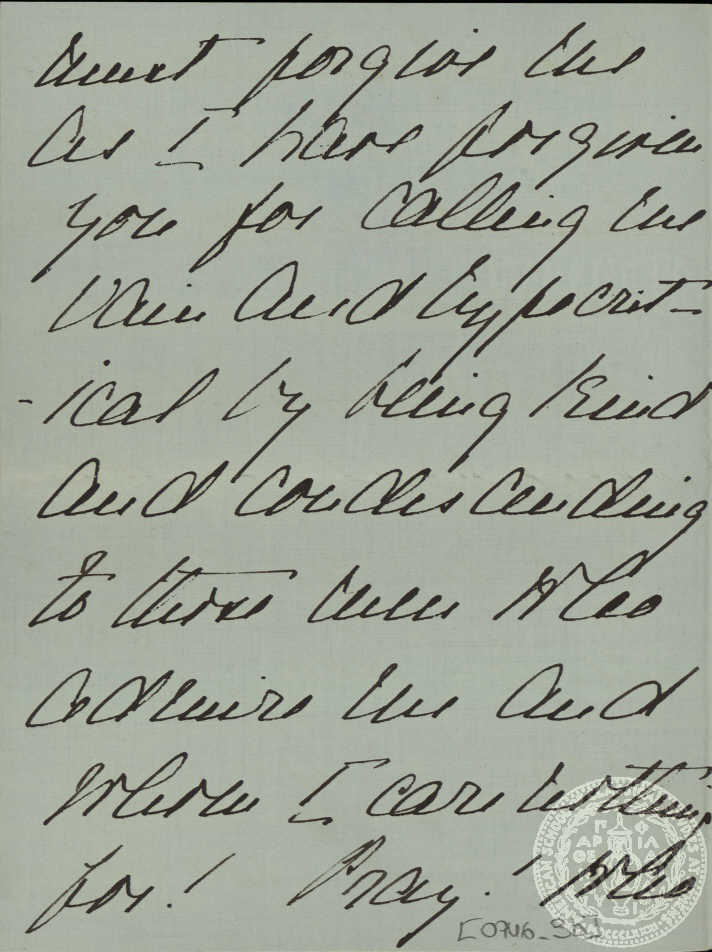 must forgive me
as I have forgiven
you for calling me
vain and hypocrit-
-ical by being kind
and condescending
to those men who
admire me and
whom I care nothing
for! Pray! who